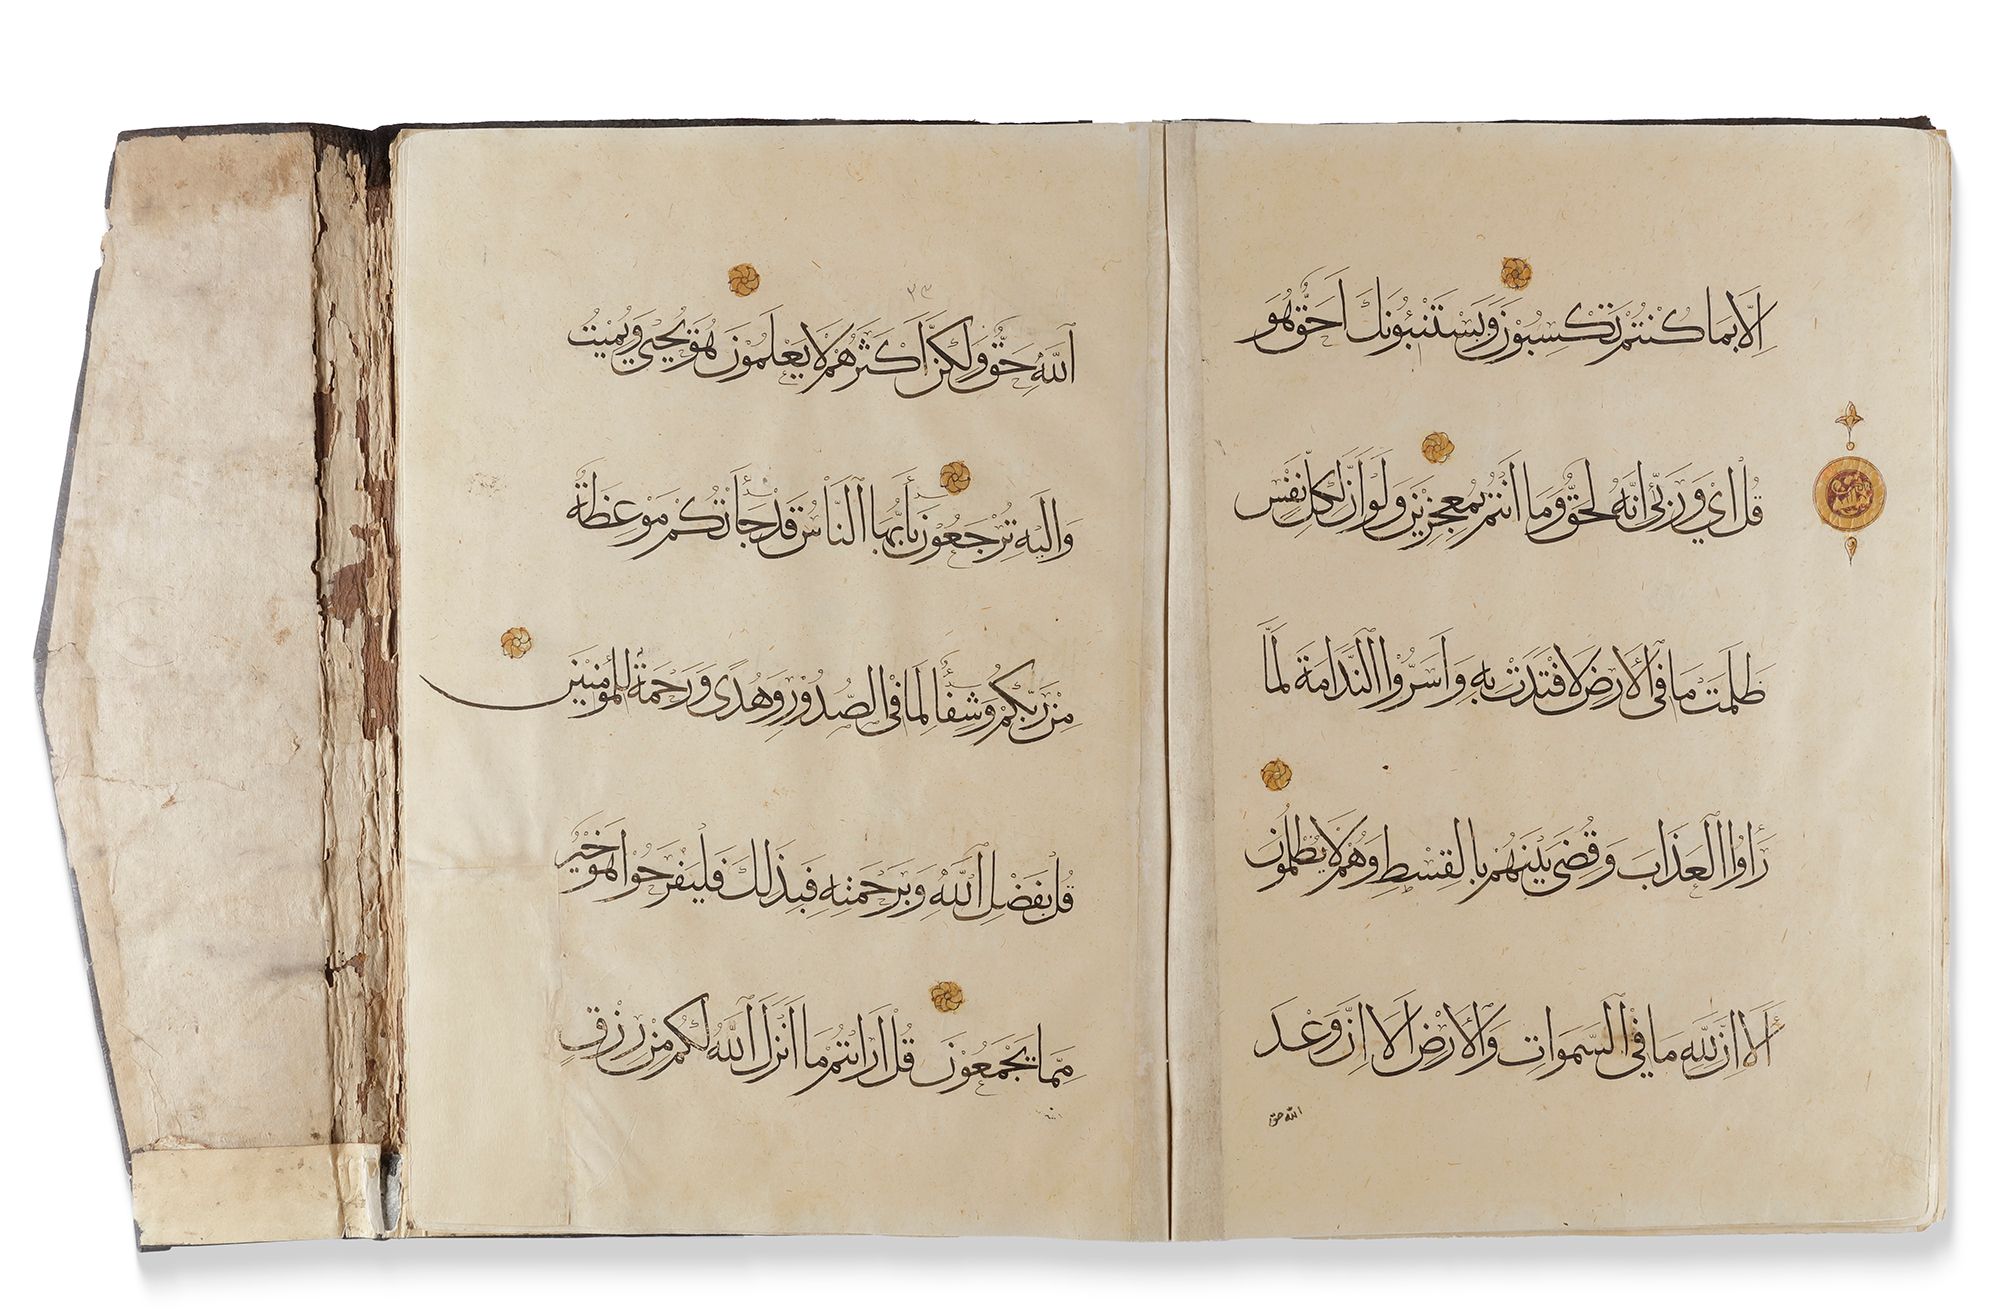 اِلَّا بِمَا كُنْتُمْ تَكْسِبُوْنَ وَيَسْتَنْبِئُونَكَ اَحَقٌّ هُوَ
قُلْ اِيْ وَرَبِّىْ اِنَّهُ لَحَقٌّ وَمَا اَنْتُمْ بِمُعْجِزِيْنَ وَلَوْ اَنَّ لِكُلِّ نَفْسٍ
ظَلَمَتْ مَا فِى الْاَرْضِ لَافْتَدَتْ بِهِ وَاَسَرُّوا النَّدَامَةَ لَمَّا
رَاَوُا الْعَذَابَ وَقُضِىَ بَيْنَهُمْ بِالْقِسْطِ وَهُمْ لَا يُظْلَمُونَ
اَلَا اِنَّ لِلّٰهِ مَا فِى السَّمٰوَاتِ وَالْاَرْضِ اَلَا اِنَّ وَعْدَ
الله حق
٢٣
اَللّٰهِ حَقٌّ وَلٰكِنَّ اَكْثَرَهُمْ لَا يَعْلَمُوْنَ هُوَ يُحْيِيْ وَيُمِيْتُ
وَاِلَيْهِ تُرْجَعُوْنَ يَا اَيُّهَا النَّاسُ قَدْ جَاۤءَتْكُمْ مَوْعِظَةٌ
مِنْ رَبِّكُمْ وَشِفَاۤءٌ لِمَا فِى الصُّدُوْرِ وَهُدًى وَرَحْمَةٌ لِلْمُؤْمِنِيْنَ
قُلْ بِفَضْلِ اللّٰهِ وَبِرَحْمَتِهِ فَبِذٰلِكَ فَلْيَفْرَحُوْا هُوَ خَيْرٌ
مِمَّا يَجْمَعُوْنَ قُلْ اَرَاَيْتُمْ مَا اَنْزَلَ اللّٰهُ لَكُمْ مِنْ رِزْقٍ